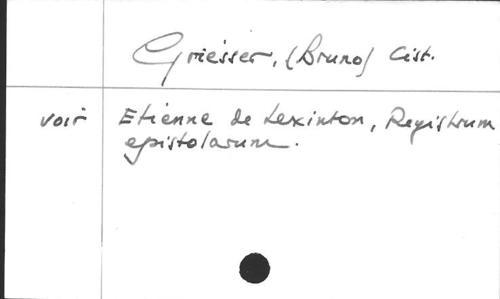 Griesser, (Bruno) Cist.
voir Etienne de Lexinton, Registrum
epistolarum.